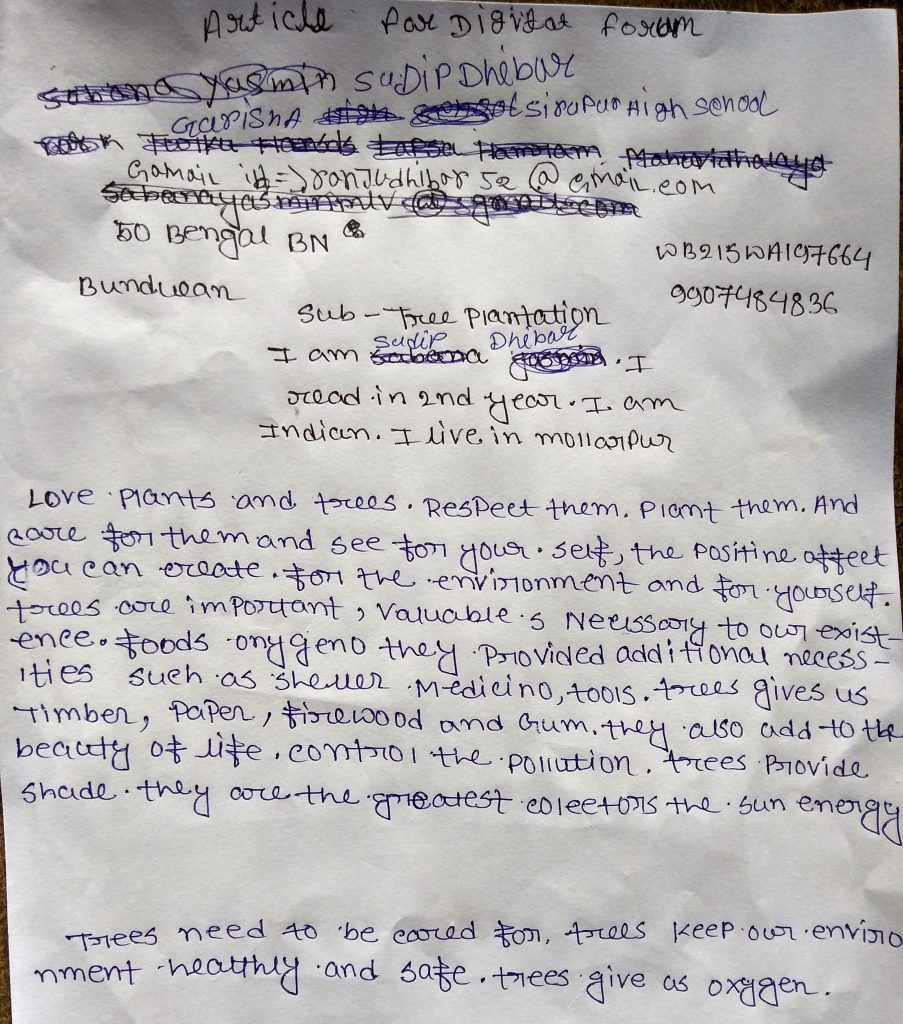 Article for Digital forum
Sabana Yasmin Sudip Dhibar
Garisha High School otsirapur High School
Gamail id => ranjudhibar52@email.com
sabanayasminmlv@gmail.com
50 Bengal BN
WB21SWA197664
Bunduean
9907484836
Sub - Tree Plantation
Sudip Dhibar
I am Sabana Yasmin. I
read in 2nd year. I am
Indian. I live in mollarpur
Love plants and trees. Respect them. Plant them. And
care for them and see for your self, the positine affeet
you can create. for the environment and for yourself.
trees are important, valuable s Neessary to our exist-
ence. foods onygeno they provided additional necess-
ities such as sheuer Medicino, tools. trees gives us
Timber, paper, firewood and Gum. they also add to the
beauty of life. control the pollution. trees provide
shade. they are the greatest coleetors the sun energy
Trees need to be cared for, trees keep our enviro
nment heatthly and safe. trees give us oxygen.